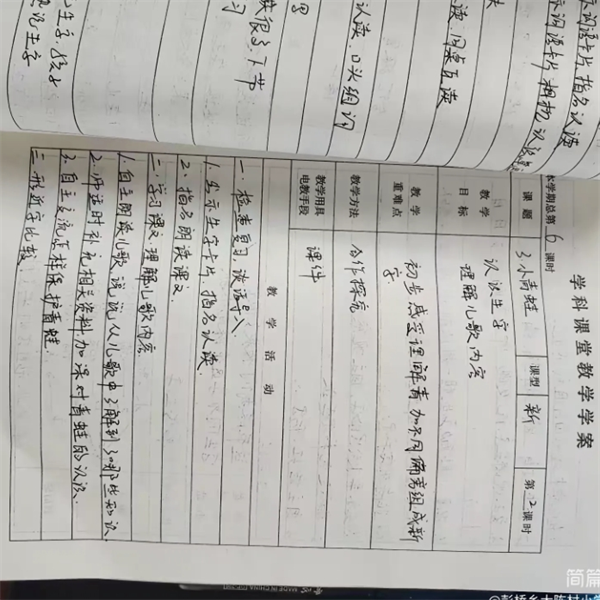 学科课堂教学学案
本学期总第6课时
课题 3小青蛙 课型 新 第2课时
教学目标 认识生字
理解儿歌内容
教学重难点 初步感受理解青加不同偏旁组成新
字
教学方法 合作探究
教学用具
电教手段 课件
教学活动
一、检查复习,谈话导入.
1、出示生字卡片,指名认读.
2、指名朗读课文.
二、学习课文,理解儿歌内容
1.自主朗读儿歌,说说从儿歌中了解到了哪些知识.
2.师适时补充相关资料加深对青蛙的认识.
3.自主交流怎样保护青蛙.
三、形近字比较.
示词语卡片,指名认读
示词语卡片,
读,同桌互读
认读,口头组词
下节
生字,
说生字
MADE IN CHINA
简篇
@彭桥乡大陈村小学